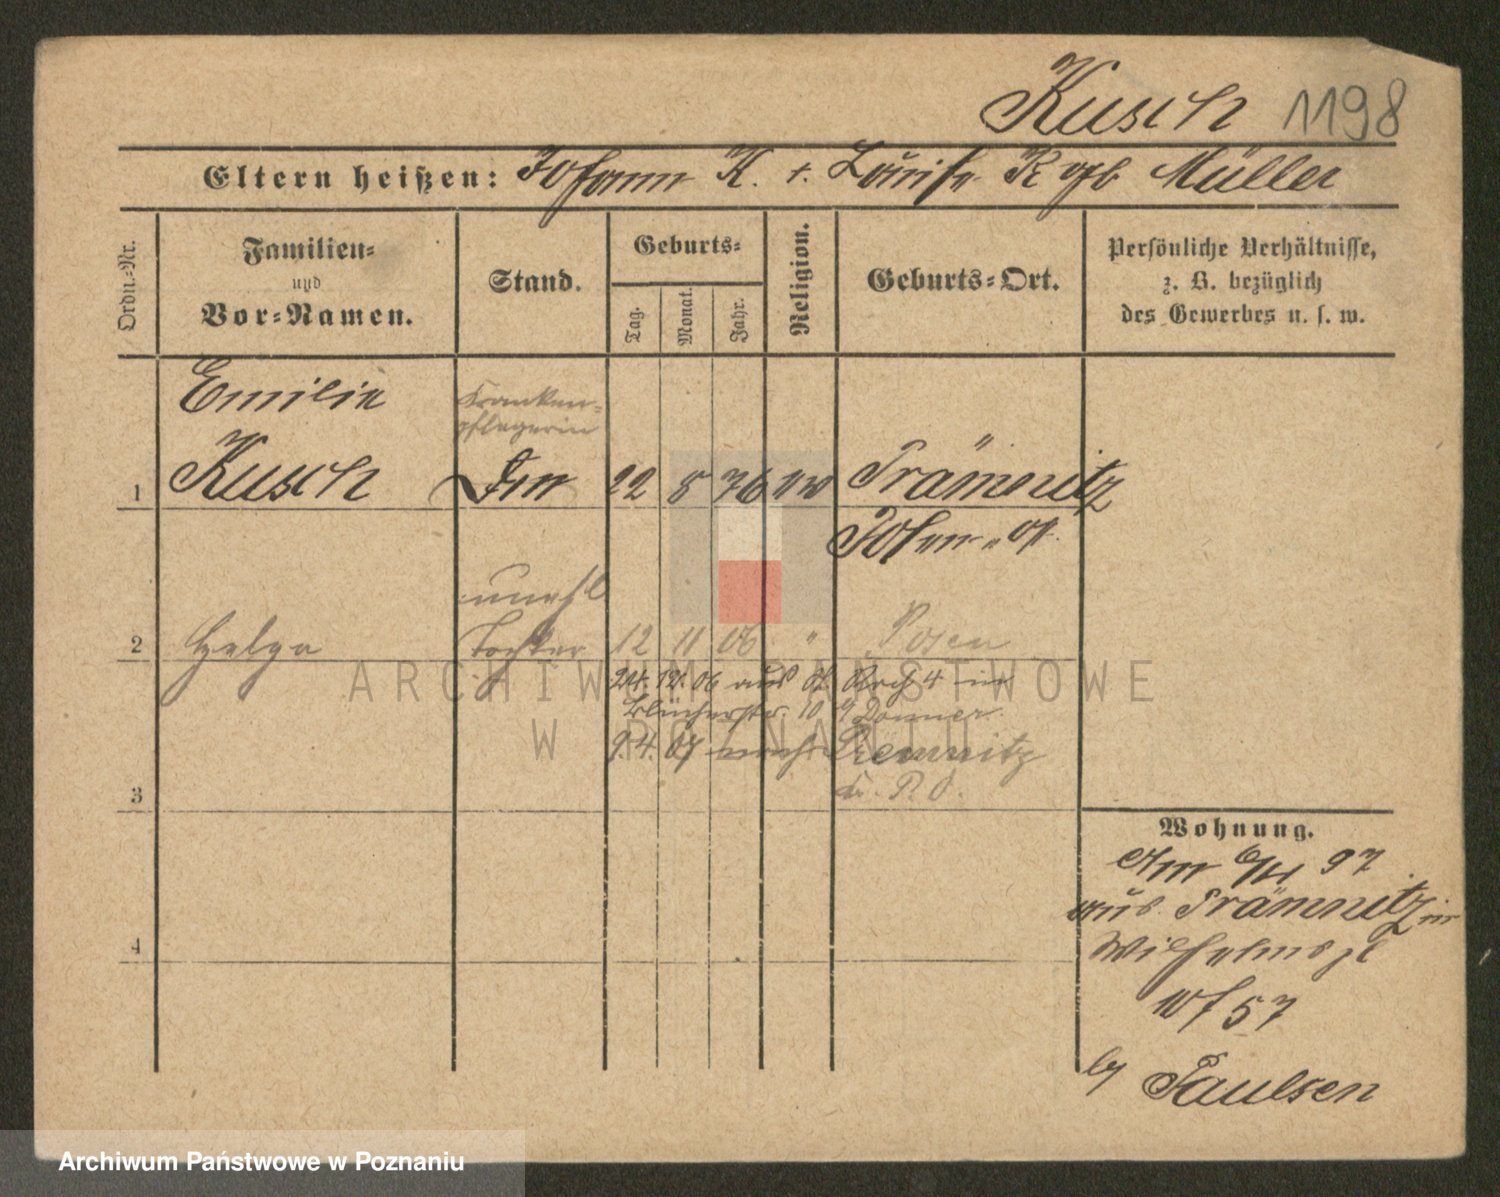 Kusch 1198
Eltern heißen: Johann K. + Louise K geb Müller
Ordn.-Nr.
Familien-
und
Vor-Namen.
Stand.
Geburts-
Tag.
Monat.
Jahr.
Religion.
Geburts-Ort.
Persönliche Verhältnisse,
z. B. bezüglich
des Gewerbes u. s. w.
Emilie
Kranken-
pflegerin
1 Kusch 22 8 76 ev Trämnitz
Posen-Ost
unehl
2 Helga Tochter 12 11 06 " Posen
24. 12. 06 aus 4 in
Blücherstr. 10
9. 4. 07 nach
3
Wohnung.
Am 97
aus Trämnitz in
Wilhelmspl
4
57
by Paulsen
ARCHIWUM PAŃSTWOWE
W POZNANIU
Archiwum Państwowe w Poznaniu